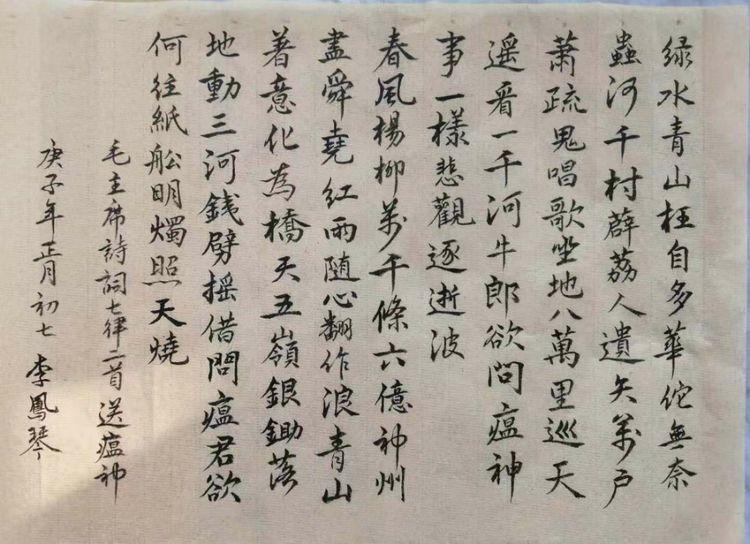 绿水青山枉自多華佗無奈
蟲河千村薜荔人遺矢萬戶
蕭疏鬼唱歌坐地八萬里巡天
遥看一千河牛郎欲问瘟神
事一樣悲觀逐逝波
春風楊柳萬千條六億神州
盡舜堯紅雨随心翻作浪青山
著意化為橋天五嶺銀鋤落
地動三河錢劈搖借問瘟君欲
何往紙船明燭照天燒
毛主席詩詞七律二首送瘟神
庚子年正月初七李鳳琴